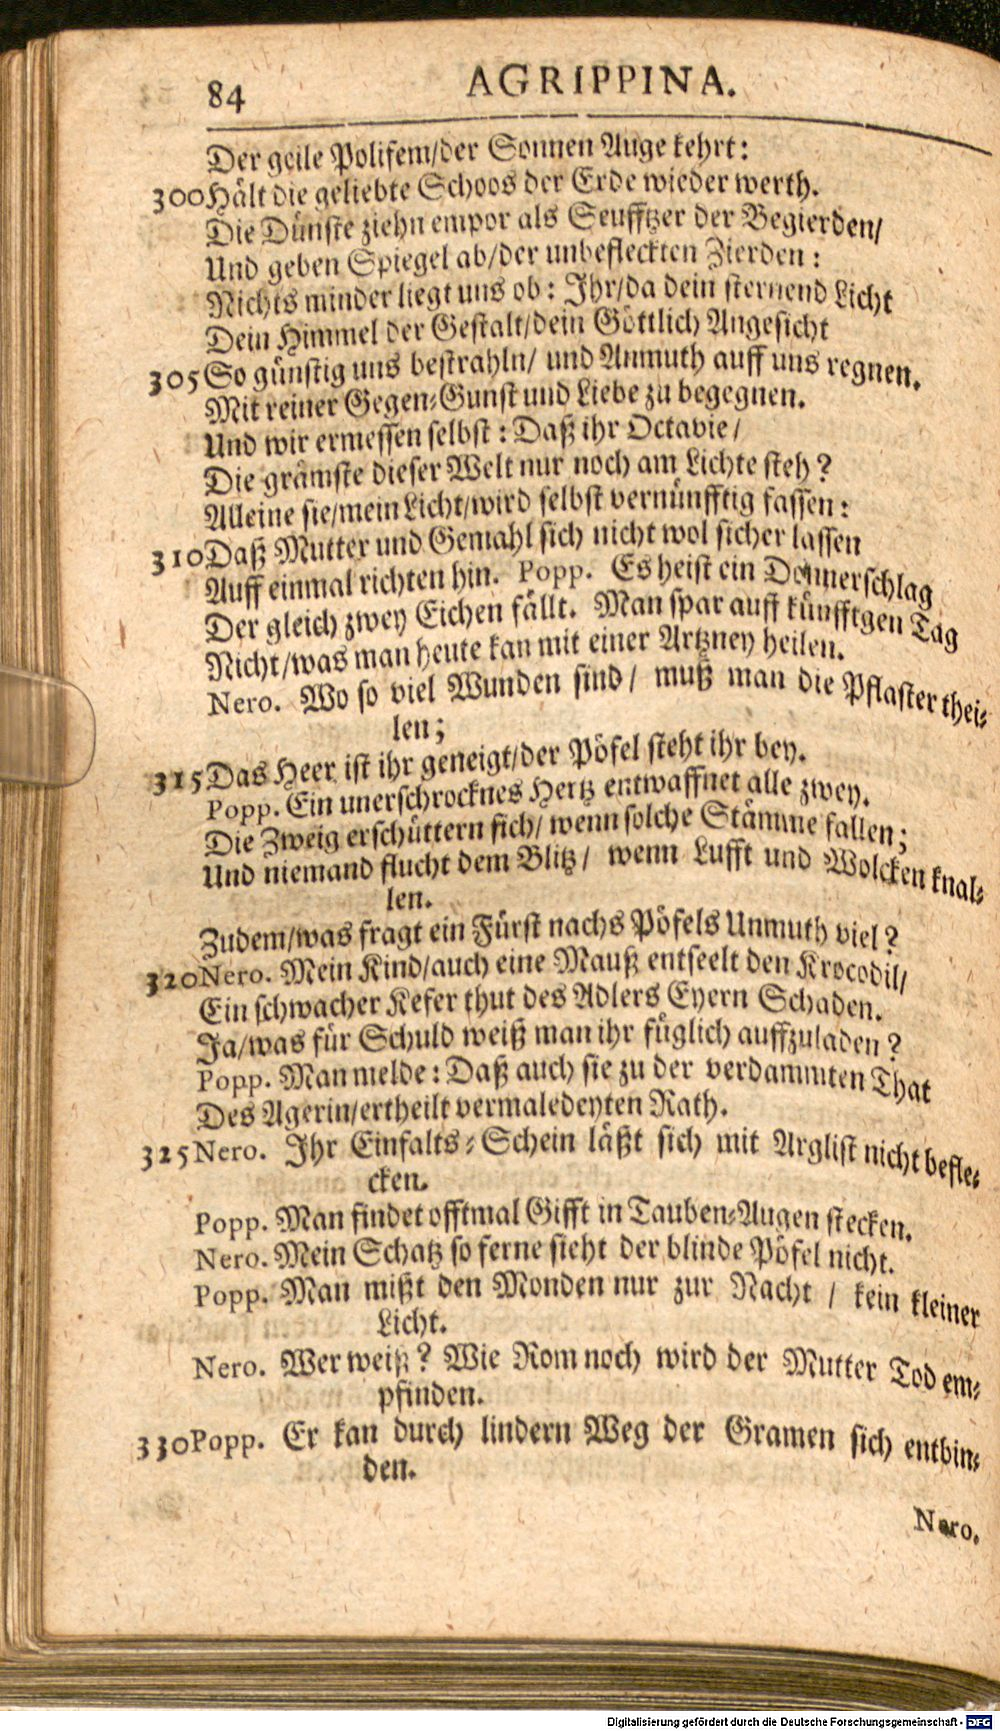 84
AGRIPPINA.
Der geile Polifem/der Sonnen Auge kehrt:
300 Hält die geliebte Schoos der Erde wieder werth.
Die Dünste ziehn empor als Seufftzer der Begierden/
Und geben Spiegel ab/der unbefleckten Zierden:
Nichts minder liegt uns ob: Ihr/da dein sternend Licht
Dein Himmel der Gestalt/dein Göttlich Angesicht
305 So günstig uns bestrahln/ und Anmuth auff uns regnen.
Mit reiner Gegen-Gunst und Liebe zu begegnen.
Und wir ermessen selbst: Daß ihr Octavie/
Die grämste dieser Welt nur noch am Lichte steh?
Alleine sie/mein Licht/wird selbst vernünfftig fassen:
310 Daß Mutter und Gemahl sich nicht wol sicher lassen
Auff einmal richten hin. Popp. Es heist ein Donnerschlag
Der gleich zwey Eichen fällt. Man spar auff künfftgen Tag
Nicht/was man heute kan mit einer Artzney heilen.
Nero. Wo so viel Wunden sind/ muß man die Pflaster thei-
len;
315 Das Heer ist ihr geneigt/der Pöfel steht ihr bey.
Popp. Ein unerschrocknes Hertz entwaffnet alle zwey.
Die Zweig erschüttern sich/ wenn solche Stämme fallen;
Und niemand flucht dem Blitz/ wenn Lufft und Wolcken knal-
len.
Zudem/was fragt ein Fürst nachs Pöfels Unmuth viel?
320 Nero. Mein Kind/auch eine Mauß entseelt den Krocodil/
Ein schwacher Kefer thut des Adlers Eyern Schaden.
Ja/was für Schuld weiß man ihr füglich auffzuladen?
Popp. Man melde: Daß auch sie zu der verdammten That
Des Agerin/ertheilt vermaledeyten Rath.
325 Nero. Ihr Einfalts-Schein läßt sich mit Arglist nicht befle-
cken.
Popp. Man findet offtmal Gifft in Tauben-Augen stecken.
Nero. Mein Schatz so ferne sieht der blinde Pöfel nicht.
Popp. Man mißt den Monden nur zur Nacht / kein kleiner
Licht.
Nero. Wer weiß? Wie Rom noch wird der Mutter Tod em-
pfinden.
330 Popp. Er kan durch lindern Weg der Gramen sich entbin-
den.
Nero.
Digitalisierung gefördert durch die Deutsche Forschungsgemeinschaft - DFG